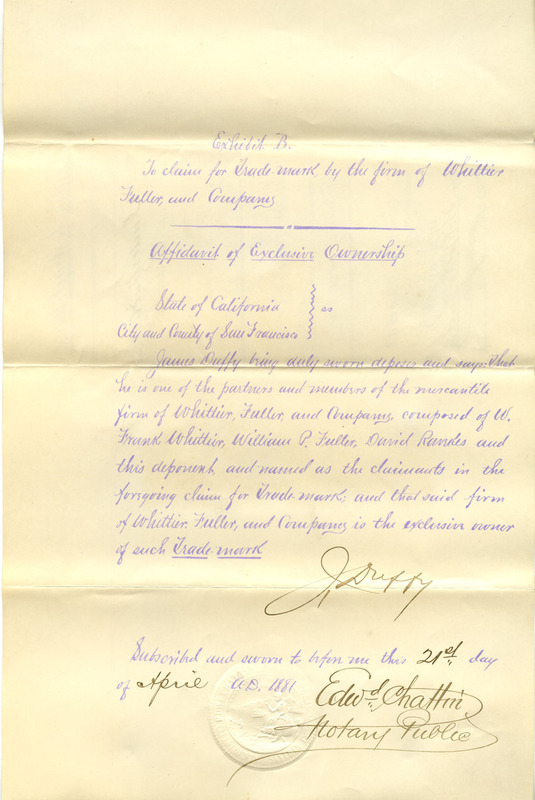 Exhibit B.
To claim for Trade mark, by the firm of Whittier
Fuller, and Company
Affidavit of Exclusive Ownership
State of California
ss
City and County of San Francisco
James Duffy being duly sworn deposes and says: that
he is one of the partners and members of the mercantile
firm of Whittier, Fuller, and Company, composed of W.
Frank Whittier, William P. Fuller, David Randes and
this deponent, and named as the claimants in the
foregoing claim for Trade mark; and that said firm
of Whittier, Fuller, and Company is the exclusive owner
of such Trade mark
J. Duffy
Subscribed and sworn to before me this 21st day
of April A.D. 1881
Edwd Chattin
Notary Public